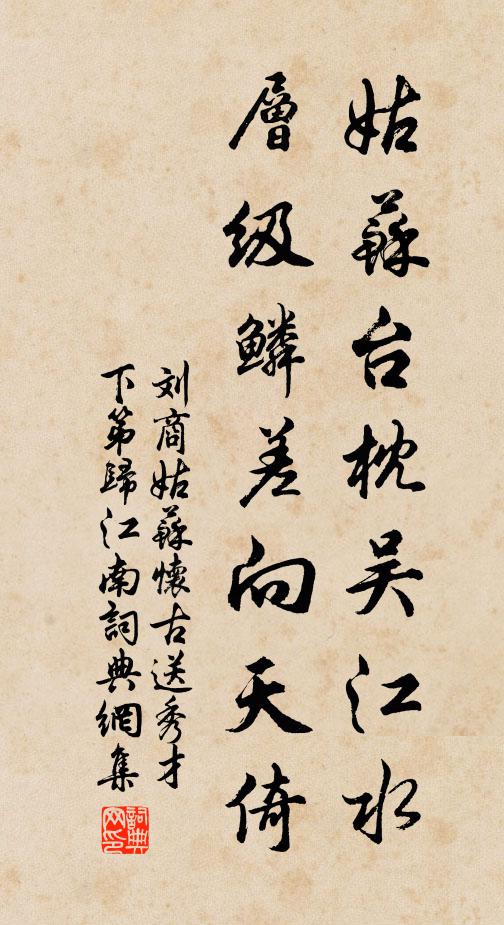 姑蘇台枕吴江水
層级鱗差向天倚
刘商姑蘇懷古送秀才
下第歸江南詞典網集
詞典
网印